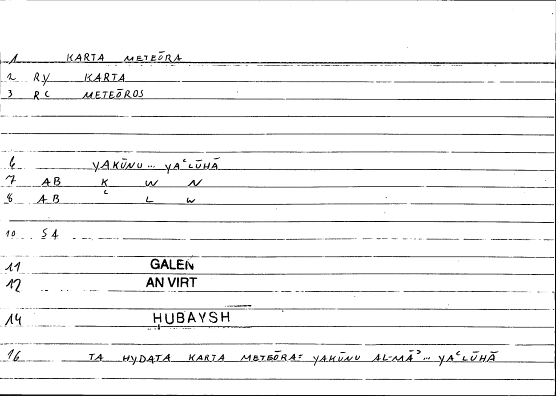 1 KARTA METEŌRA
2 RY KARTA
3 RC METEŌROS
6 YAKŪNU... YAʿLŪHĀ
7 AB K W N
8 AB ʿ L W
10 SA
11 GALEN
12 AN VIRT
14 ḤUBAYSH
16 TA HYDATA KARTA METEŌRA = YAKŪNU AL-MĀʾ... YAʿLŪHĀ